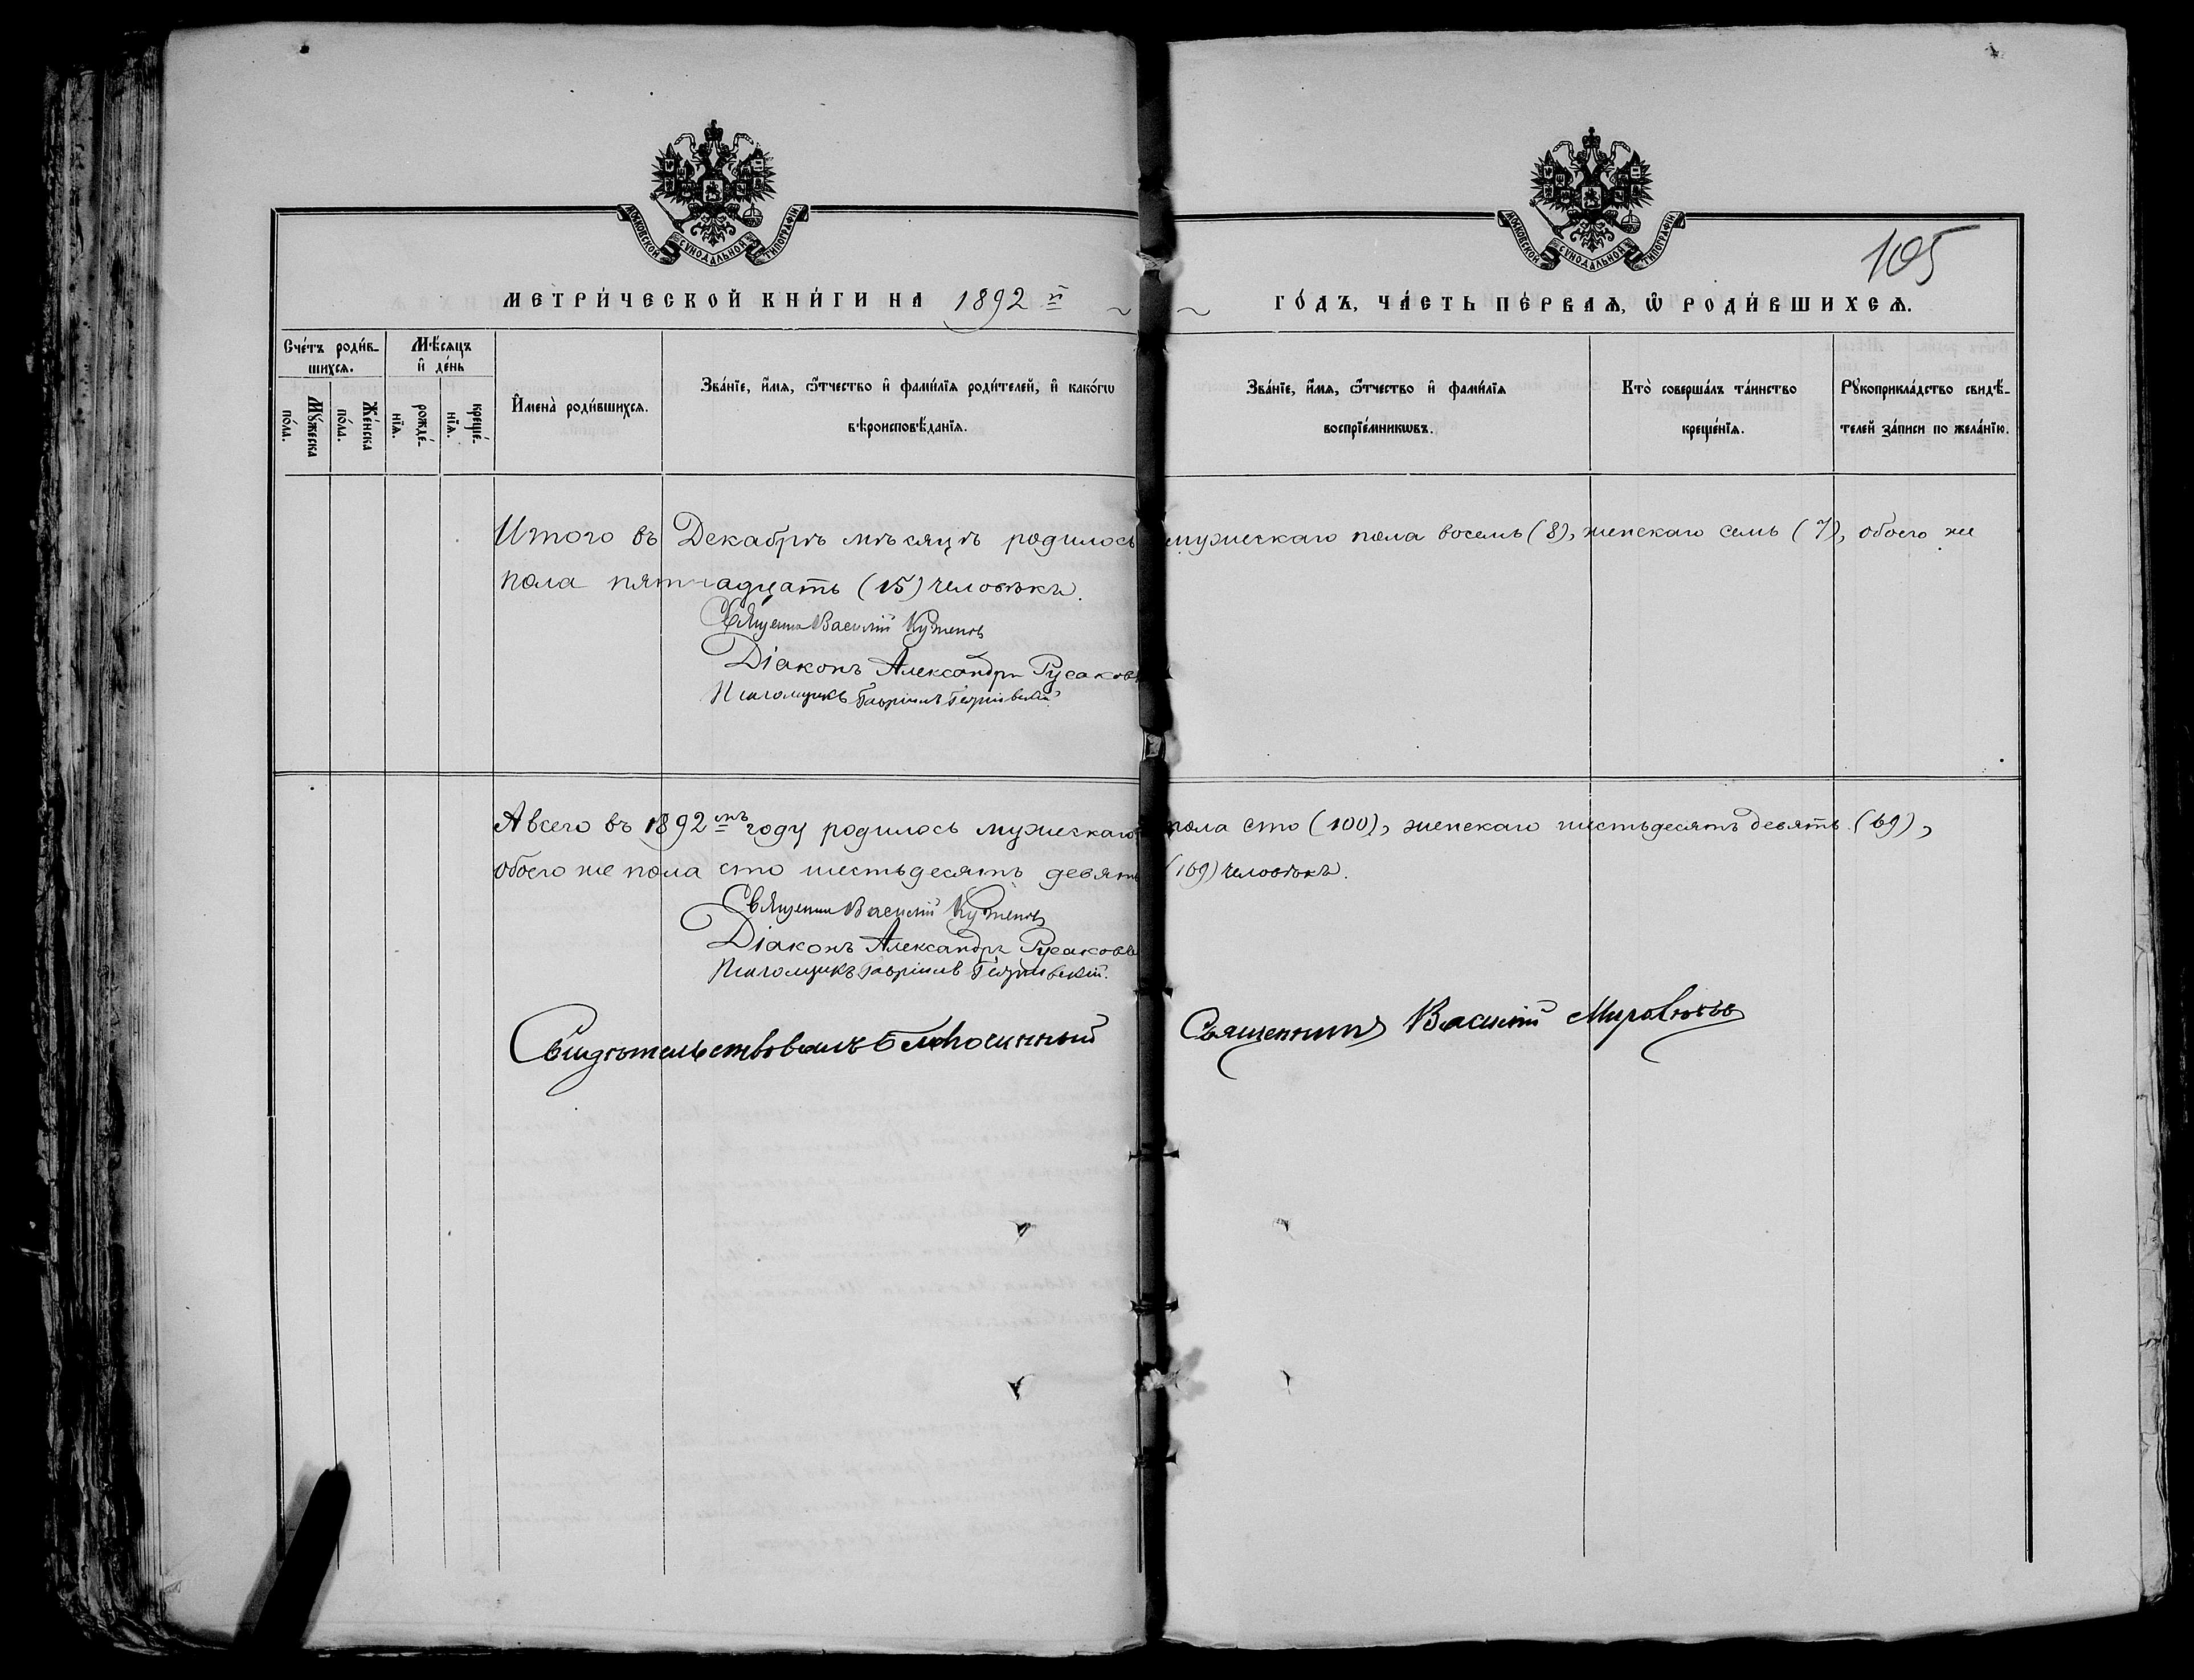 МОСКОВСКОЙ СѴНОДАЛЬНОЙ ТИПОГРАФІИ.
МОСКОВСКОЙ СѴНОДАЛЬНОЙ ТИПОГРАФІИ.
105
МЕТРИ́ЧЕСКОЙ КНИ́ГИ НА 1892й ГО́ДЪ, ЧА́СТЬ ПЕ́РВАѦ, Ѡ҆ РОДИ́ВШИХСѦ.
Сче́тъ роди́в-
шихсѧ.
Мꙋ́жеска
по́ла.
Же́нска
по́ла.
Мѣ́сѧцъ
и҆ де́нь
рожде́-
нїѧ.
креще́-
нїѧ.
И҆мена̀ роди́вшихсѧ.
Зва́нїе, и҆́мѧ, ѻ҆́тчество и҆ фамѝлїѧ роди́телей, и҆ како́гѡ
вѣроисповѣ́данїѧ.
Зва́нїе, и҆́мѧ, ѻ҆́тчество и҆ фамѝлїѧ
воспрїе́мникѡвъ.
Кто̀ соверша́лъ та́инство
креще́нїѧ.
Рꙋкоприкла́дство свидѣ́-
телей за́писи по жела́нїю.
Итого въ Декабрѣ мѣсяцѣ родилось мужескаго пола восемь (8), женскаго семь (7), обоего же
пола пятнадцать (15) человѣкъ.
Священ. Василій
Діаконъ Александръ Русаковъ
Псаломщикъ Гавріилъ Георгіевскій
А всего въ 1892мъ году родилось мужескаго пола сто (100), женскаго шестьдесятъ девять (69),
обоего же пола сто шестьдесятъ девять (169) человѣкъ.
Священ. Василій
Діаконъ Александръ Русаковъ
Псаломщикъ Гавріилъ Георгіевскій.
Свидѣтельствовалъ Благочинный Священникъ Василій